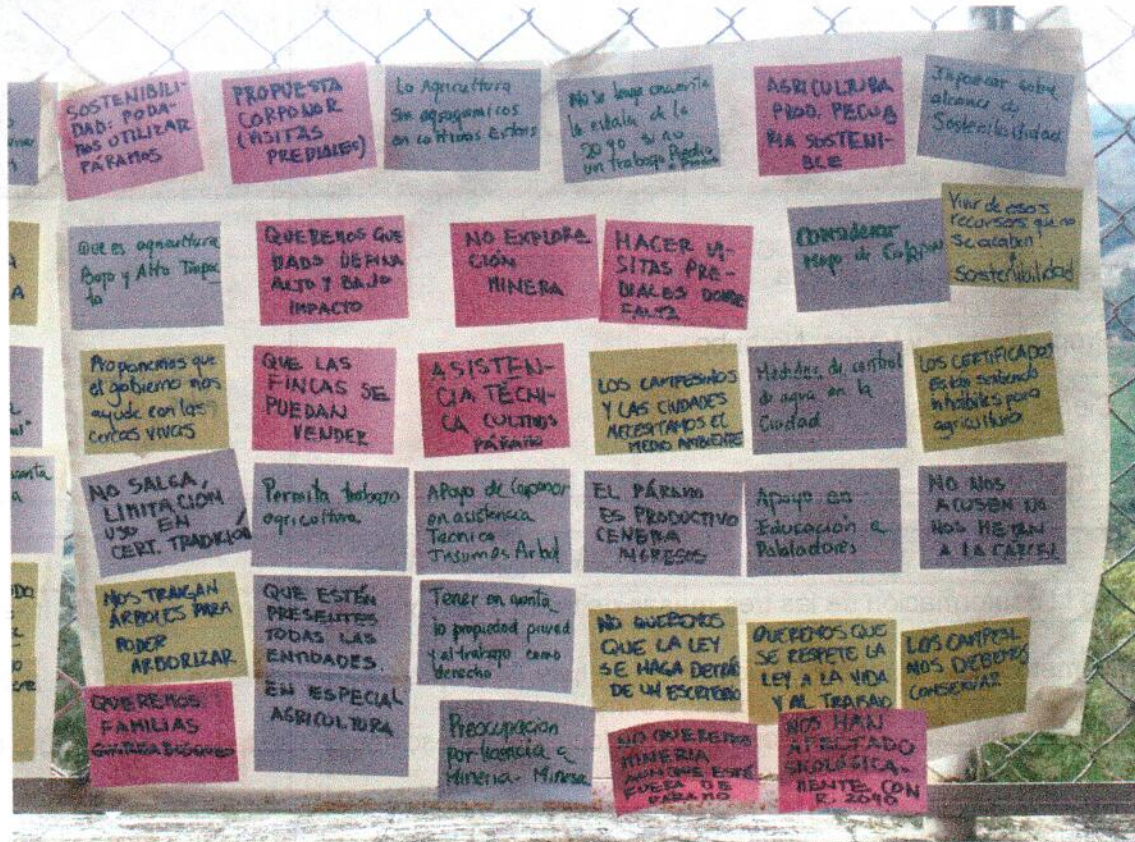 SOSTENIBILI-
DAD: PODA-
MOS UTILIZAR
PÁRAMOS
PROPUESTA
CORPONOR
(VISITAS
PREDIALES)
La Agricultura
Sin agroquimicos
en cultivos
No se tenga en cuenta
la escala de la
2090 si no
un trabajo Predio
a Predio
AGRICULTURA
PROD. PECUA
RIA SOSTENI-
BLE
Informar sobre
alcance de
Sostenibilidad
Que es agricultura
Bajo y Alto Impac
to
QUEREMOS QUE
DADO DEFINA
ALTO Y BAJO
IMPACTO
NO EXPLORA
CIÓN
MINERA
HACER VI-
SITAS PRE-
DIALES DONDE
FALTA
Considerar
Mapa de
Vivir de esos
recursos que no
se acaben
Sostenibilidad
Proponemos que
el gobierno nos
ayude con las
cercas vivas
QUE LAS
FINCAS SE
PUEDAN
VENDER
ASISTEN-
CIA TÉCNI-
CA CULTIVOS
PÁRAMO
LOS CAMPESINOS
Y LAS CIUDADES
NECESITAMOS EL
MEDIO AMBIENTE
Medidas de control
de agua en la
Ciudad
LOS CERTIFICADOS
Estan saliendo
inhabiles para
agricultura
NO SALGA,
LIMITACION
USO EN
CERT. TRADICIÓN
Permita trabajo
agricultura
Apoyo de Corponor
en asistencia
Tecnica
Insumos Arbol
EL PÁRAMO
ES PRODUCTIVO
GENERA
INGRESOS
Apoyo en
Educación a
Pobladores
NO NOS
ACUSEN NO
NOS METAN
A LA CARCEL
NOS TRAIGAN
ÁRBOLES PARA
PODER
ARBORIZAR
QUE ESTÉN
PRESENTES
TODAS LAS
ENTIDADES.
EN ESPECIAL
AGRICULTURA
Tener en cuenta
la propiedad privad
y al trabajo como
derecho
NO QUEREMOS
QUE LA LEY
SE HAGA DETRÁS
DE UN ESCRITORIO
QUEREMOS QUE
SE RESPETE LA
LEY A LA VIDA
Y AL TRABAJO
LOS CAMPESI
NOS DEBEMOS
CONSERVAR
QUEREMOS
FAMILIAS
GUARDABOSQUES
Preocupacion
por licencia a
Mineria - Minesa
NO QUEREMOS
MINERIA
AUNQUE ESTÉ
FUERA DE
PARAMO
NOS HAN
AFECTADO
SICOLÓGICA-
MENTE CON
R. 2090